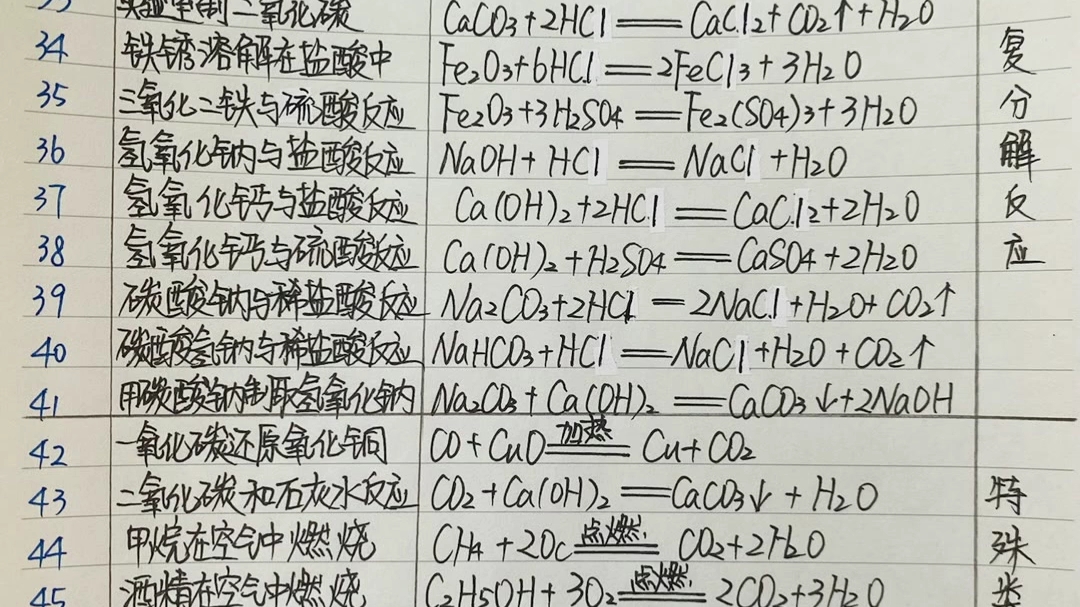 33 实验室制二氧化碳 CaCO3+2HCl══CaCl2+CO2↑+H2O
34 铁锈溶解在盐酸中 Fe2O3+6HCl══2FeCl3+3H2O
35 三氧化二铁与硫酸反应 Fe2O3+3H2SO4══Fe2(SO4)3+3H2O
36 氢氧化钠与盐酸反应 NaOH+HCl══NaCl+H2O
37 氢氧化钙与盐酸反应 Ca(OH)2+2HCl══CaCl2+2H2O
38 氢氧化钙与硫酸反应 Ca(OH)2+H2SO4══CaSO4+2H2O
39 碳酸钠与稀盐酸反应 Na2CO3+2HCl══2NaCl+H2O+CO2↑
40 碳酸氢钠与稀盐酸反应 NaHCO3+HCl══NaCl+H2O+CO2↑
41 用碳酸钠制取氢氧化钠 Na2CO3+Ca(OH)2══CaCO3↓+2NaOH
复分解反应
42 一氧化碳还原氧化铜 CO+CuO══加热══Cu+CO2
43 二氧化碳和石灰水反应 CO2+Ca(OH)2══CaCO3↓+H2O
44 甲烷在空气中燃烧 CH4+2O2══点燃══CO2+2H2O
45 酒精在空气中燃烧 C2H5OH+3O2══点燃══2CO2+3H2O
特殊类